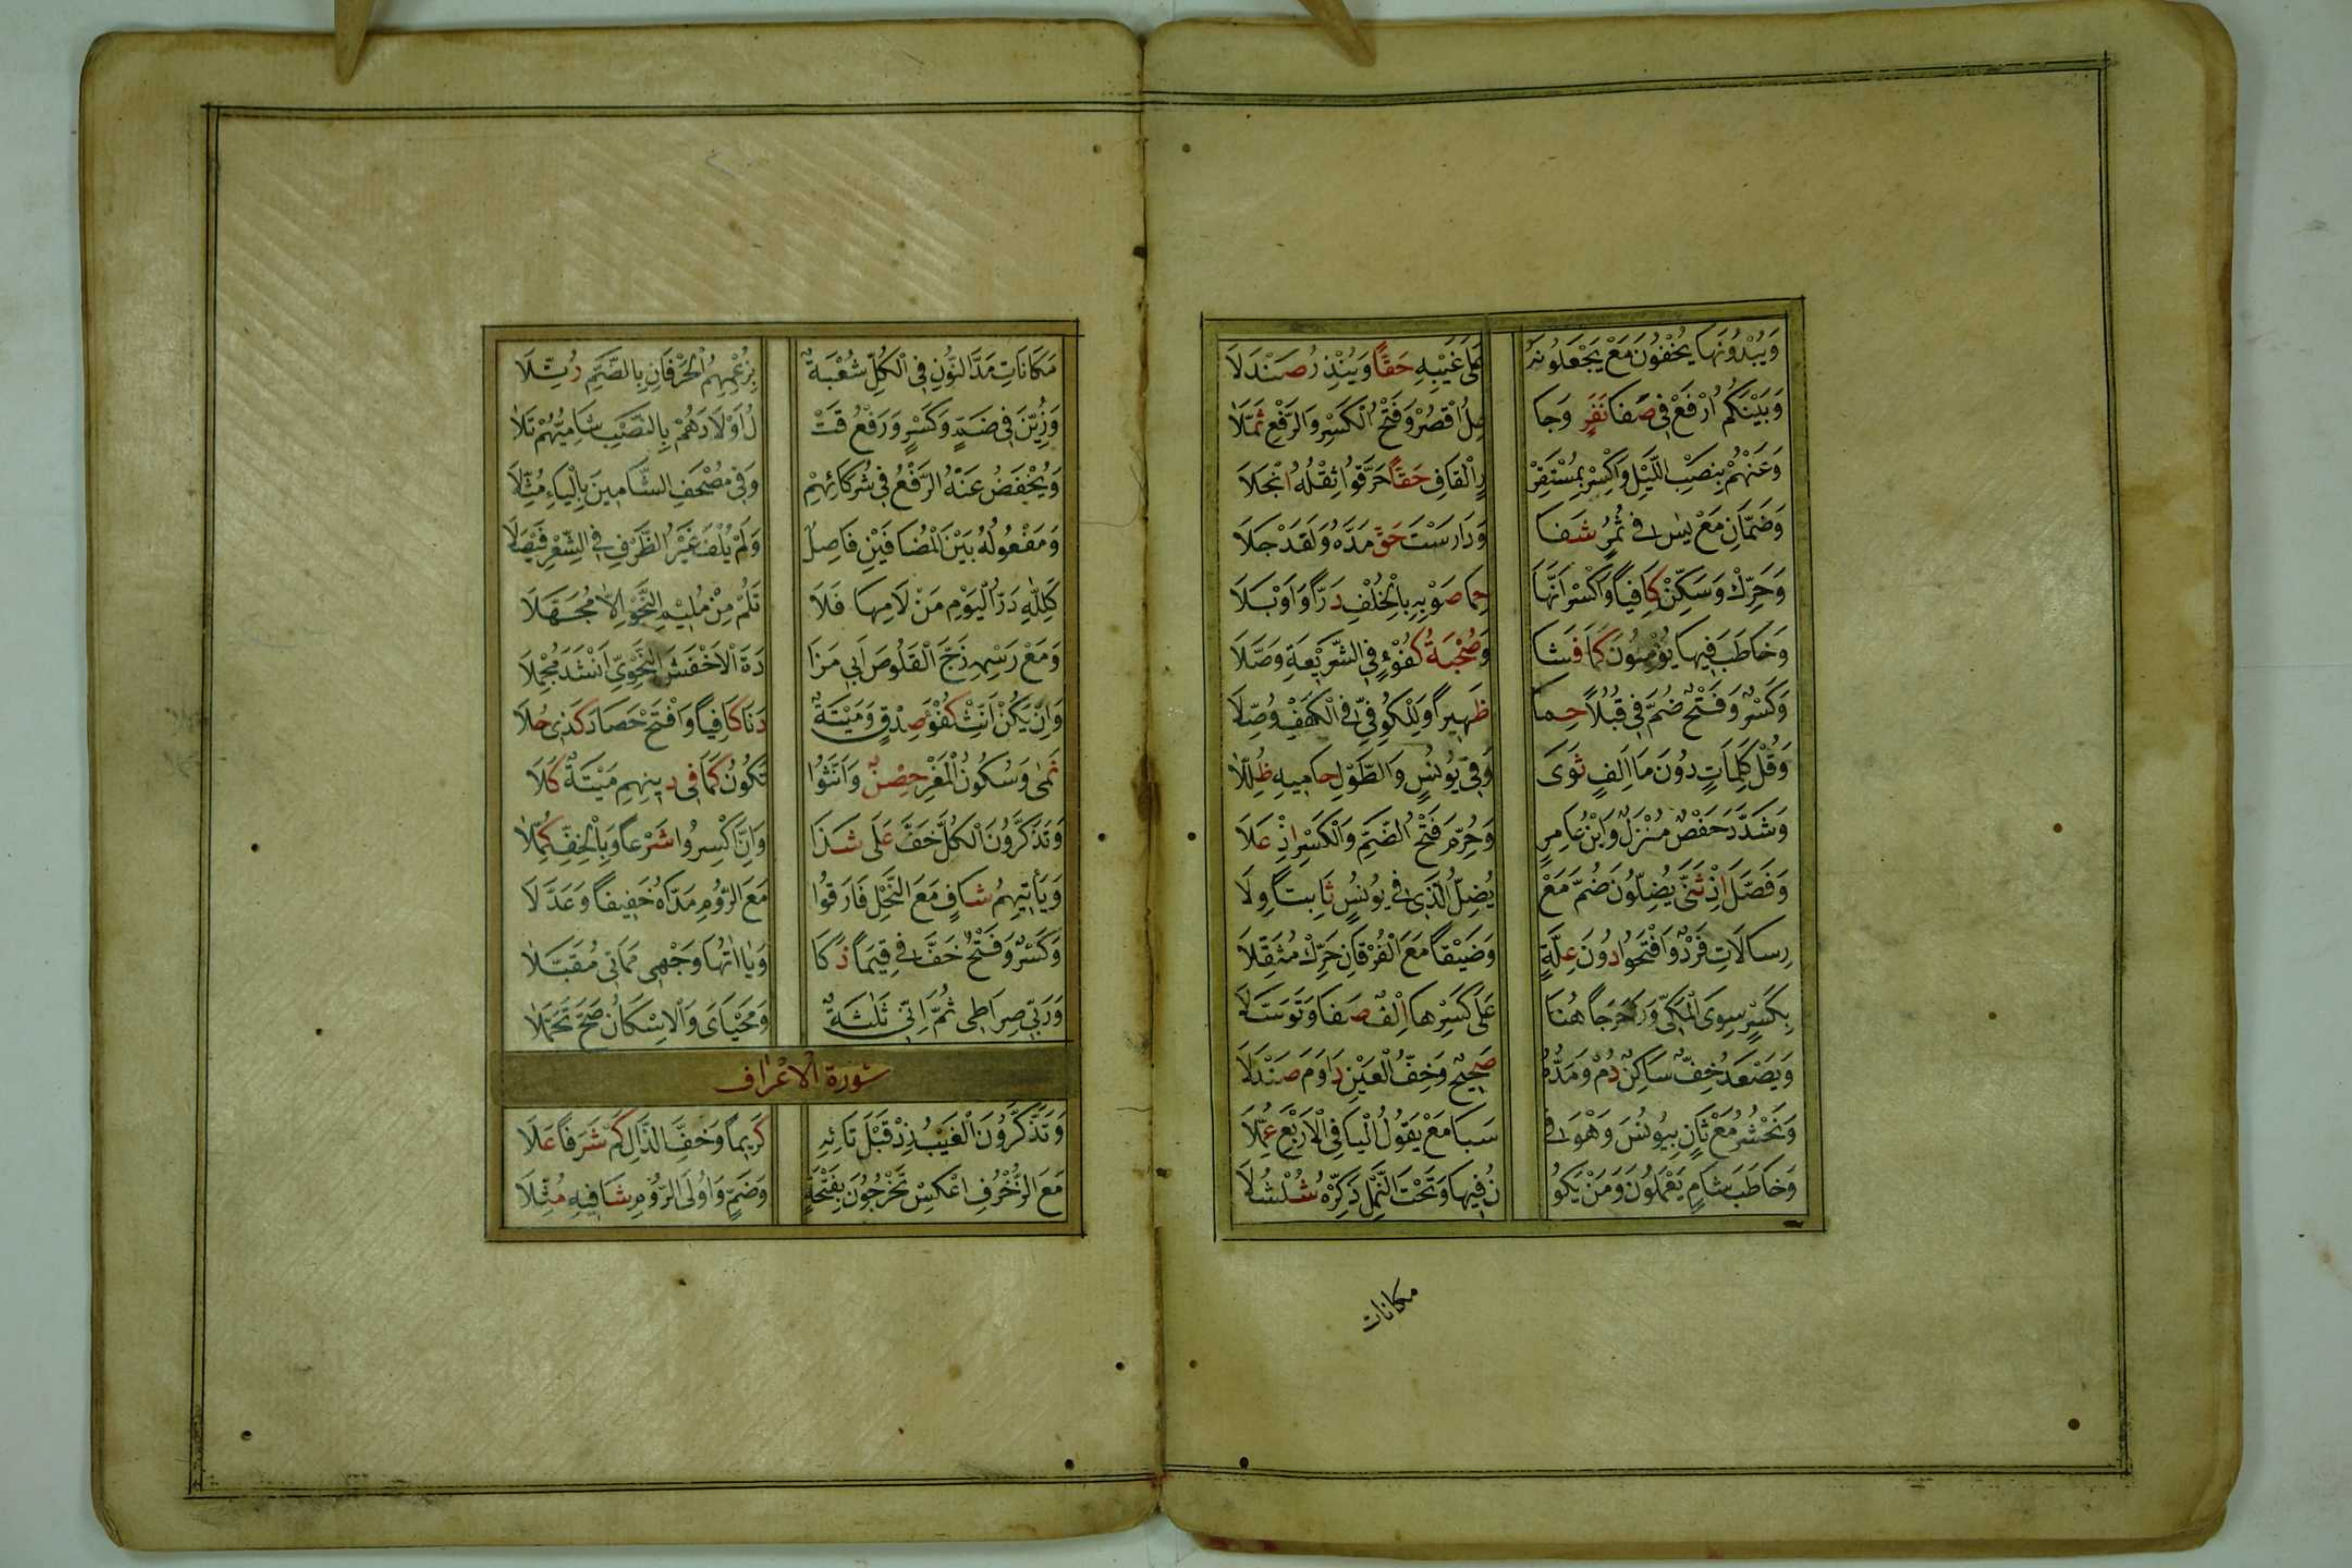 وَيُبْدُونَهَا يُخْفُونَ مَعْ يَجْعَلُونَهُ عَلَى غَيْبِهِ حَقًّا وَيُنْذِرُ صَنْدَلَا
وَبَيْنَكُمُ ارْفَعْ فِي صَفَا نَفَرٍ وَجَا عِلُ اقْصُرْ وَفَتْحُ الْكَسْرِ وَالرَّفْعِ ثَمَّلَا
وَعَنْهُمْ بِنَصْبِ اللَّيْلِ وَاكْسِرْ بِمُسْتَقَرْ رٍ الْقَافِ حَقًّا خَرَّقُوا ثِقْلُهُ انْجَلَا
وَضَمَّانِ مَعْ يٰس فِي ثُمُرٍ شَفَا وَدَارَسْتَ حَقٌّ مَدُّهُ وَلَقَدْ حَلَا
وَحَرِّكْ وَسَكِّنْ كَافِيًا وَاكْسِرْ أَنَّهَا حِمَا صَوْبِهِ بِالْخُلْفِ دَرَّ وَاَوْبَلَا
وَخَاطَبَ فِيهَا يُؤْمِنُونَ كَمَا فَشَا وَصُحْبَةُ كُفْوٍ فِي الشَّرِيْعَةِ وَصَّلَا
وَكَسْرٌ وَفَتْحٌ ضُمَّ فِي قُبُلًا حِما ظَهِيرًا وَلِلْكُوفِيِّ فِي الْكَهْفِ وُصِّلَا
وَقُلْ كَلِمَاتٍ دُونَ مَا اَلِفٍ ثَوَى وَفِي يُونُسٍ وَالطَّوْلِ حَامِيهِ ظَلَّلَا
وَشَدَّدَ حَفْصٌ مُنْزَلٌ وَابْنُ عَامِرٍ وَحُرِّمَ فَتْحُ الضَّمِّ وَالْكَسْرِ اِذْ عَلَا
وَفَصَّلَ اِذْ ثَنَّى يُضِلُّونَ ضُمَّ مَعْ يُضِلُّ الَّذِي فِي يُونُسٍ ثَابِتًا وِلَا
رِسَالَاتِ فَرْدٌ وَافْتَحُوا دُونَ عِلَّةٍ وَضَيْقًا مَعَ الْفُرْقَانِ حَرِّكْ مُثَقِّلَا
بِكَسْرٍ سِوَى الْمَكِّي وَرَا حَرَجًا هُنَا عَلَى كَسْرِهَا اِلْفٌ صَفَا وَتَوَسَّلَا
وَيَصْعَدُ خِفٌّ سَاكِنٌ دُمْ وَمَدُّهُ صَحِيحٌ وَخِفُّ الْعَيْنِ دَاوَمَ صَنْدَلَا
وَنَحْشُرُ مَعْ ثَانٍ بِيُونُسَ وَهْوَ فِي سَبَا مَعْ يَقُولُ الْيَا فِي الْاَرْبَعِ عُمِّلَا
وَخَاطَبَ شَامٍ يَعْمَلُونَ وَمَنْ يَكُو نُ فِيهَا وَتَحْتَ النَّمْلِ ذَكِّرْهُ شُلْشُلَا
مكانات
مَكَانَاتِ مَدَّ النُّونِ فِي الْكُلِّ شُعْبَةٌ بِزُعْمِهِمُ الْحَرْفَانِ بِالضَّمِّ رُتِّلَا
وَزُيِّنَ فِي ضَمٍّ وَكَسْرٍ وَرَفْعُ قَتْ لُ اَوْلَادَهُمْ بِالنَّصْبِ شَامِيُّهُمْ تَلَا
وَيُخْفَضُ عَنْهُ الرَّفْعُ فِي شُرَكَائِهِمْ وَفِي مُصْحَفِ الشَّامِينَ بِالْيَاءِ مُثِّلَا
وَمَفْعُولُهُ بَيْنَ الْمُضَافَيْنِ فَاصِلٌ وَلَمْ يُلْفَ غَيْرُ الظَّرْفِ فِي الشِّعْرِ فَيْصَلَا
كَلِلّٰهِ دَرُّ الْيَوْمِ مَنْ لَامَهَا فَلَا تَلُمْ مِنْ مُلِيْمِ النَّحْوِ اِلَّا مُجَهِّلَا
وَمَعْ رَسْمِهِ زَجَّ الْقَلُوصَ اَبِي مَزَا دَةَ الْاَخْفَشُ النَّحْوِيُّ اَنْشَدَ مُجْمِلَا
وَاِنْ يَكُنْ اَنِّثْ كُفْوَ صِدْقٍ وَمَيْتَةٌ دَنَا كَافِيًا وَافْتَحْ حَصَادِ كَذِي حُلَا
نَمٰى وَسُكُونُ الْمَعْزِ حِصْنٌ وَاَنَّثُوا تَكُونُ كَمَا فِي دِينِهِمْ مَيْتَةٌ كَلَا
وَتَذَّكَّرُونَ الْكُلُّ خَفَّ عَلَى شَذَا وَاَنَّ اكْسِرُوا شَرْعًا وَبِالْخِفِّ كُمِّلَا
وَيَأْتِيهِمُ شَافٍ مَعَ النَّحْلِ فَارَقُوا مَعَ الرُّومِ مَدَّاهُ خَفِيفًا وَعَدَّلَا
وَكَسْرٌ وَفَتْحٌ خَفَّ فِي قِيَمًا ذَكَا وَيَا اٰتُهَا وَجْهِي مَمَاتِي مُقْبَلَا
وَرَبِّي صِرَاطِي ثُمَّ اِنِّي ثَلٰثَةٌ وَمَحْيَايَ وَالْاِسْكَانُ صَحَّ تَحَمُّلَا
سُورَةُ الْاَعْرَافِ
وَتَذَّكَّرُونَ الْغَيْبُ زِدْ قَبْلَ تَائِهِ كَرِيمًا وَخِفُّ الذَّالِ كَمْ شَرَفًا عَلَا
مَعَ الزُّخْرُفِ اعْكِسْ تُخْرَجُونَ بِفَتْحَةٍ وَضَمٍّ وَاُولَى الرُّومِ شَافِيهِ مُثِّلَا